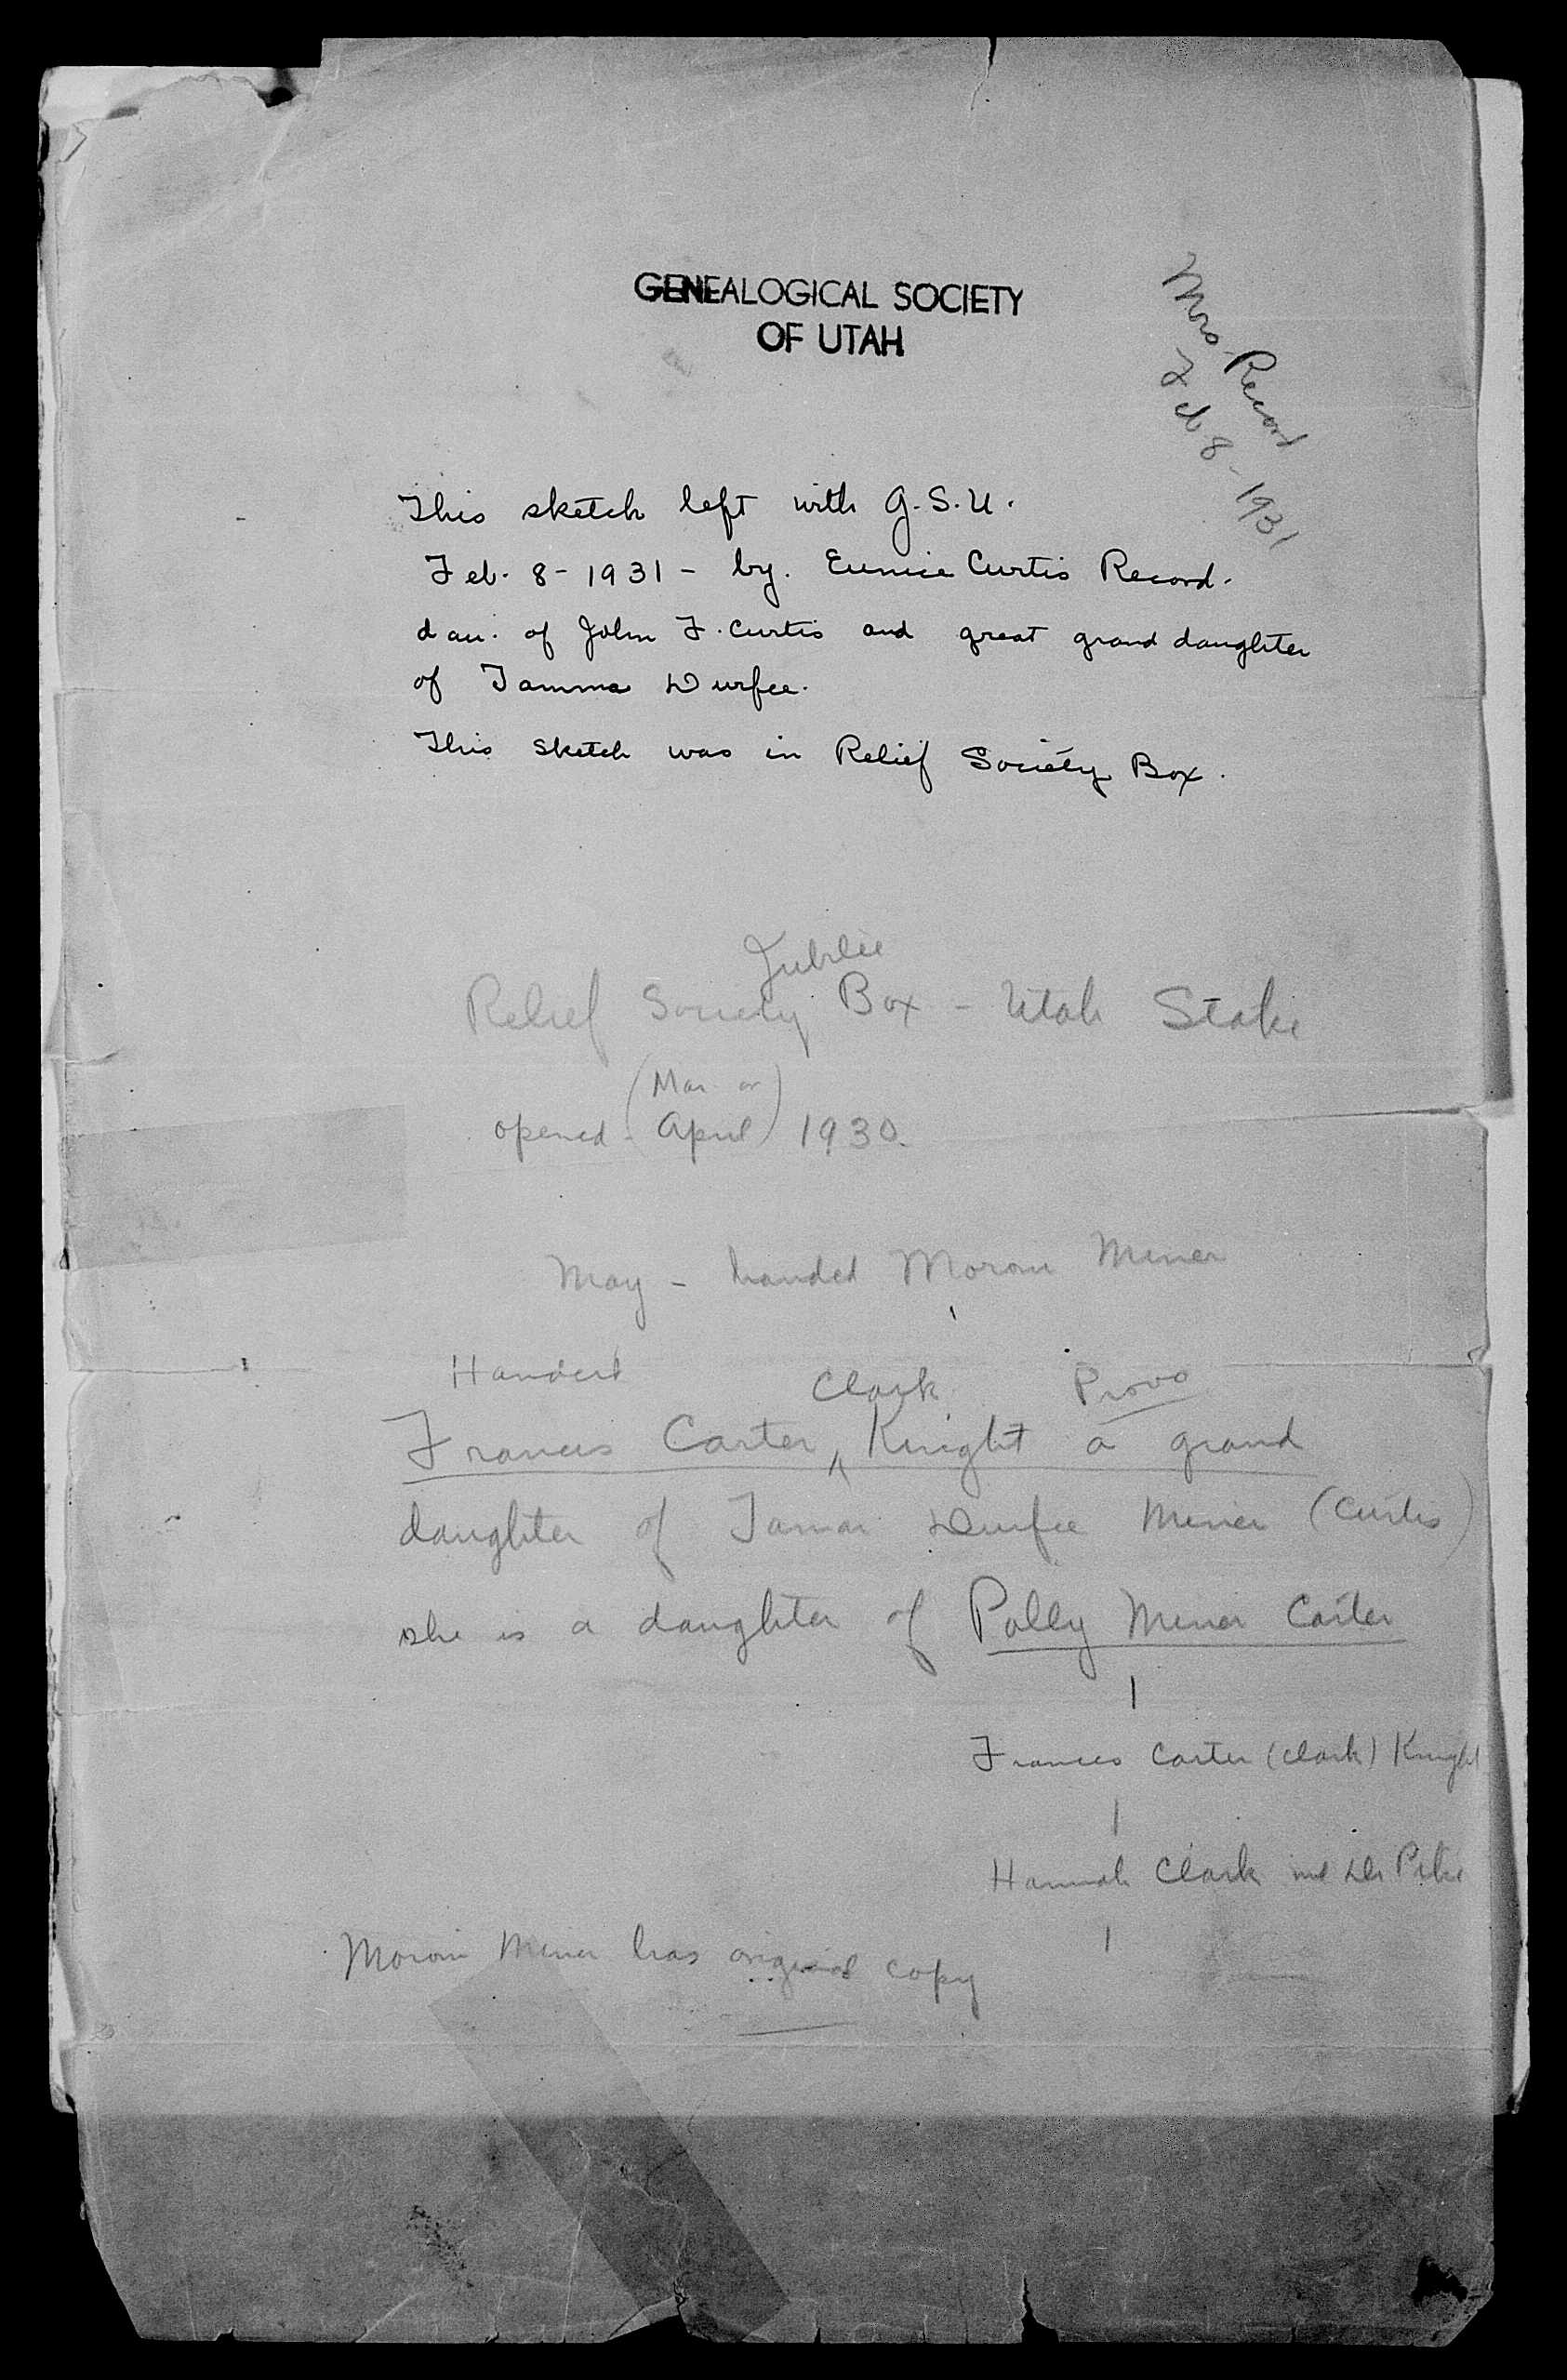 GENEALOGICAL SOCIETY
OF UTAH
Mrs Record
Feb 8 - 1931
This sketch left with G.S.U.
Feb. 8 - 1931 - by. Eunice Curtis Record.
dau. of John F. Curtis and great grand daughter
of Tamma Durfee.
This sketch was in Relief Society Box.
Jubilee
Relief Society Box - Utah Stake
(Mar or
opened - April) 1930.
May - handed Moroni Miner
Handed Clark Provo
Frances Carter ^ Knight a grand
daughter of Tamar Durfee Miner (Curtis)
she is a daughter of Polly Miner Carter
Frances Carter (Clark) Knight
Hannah Clark md Dr Pike
Moroni Miner has original copy